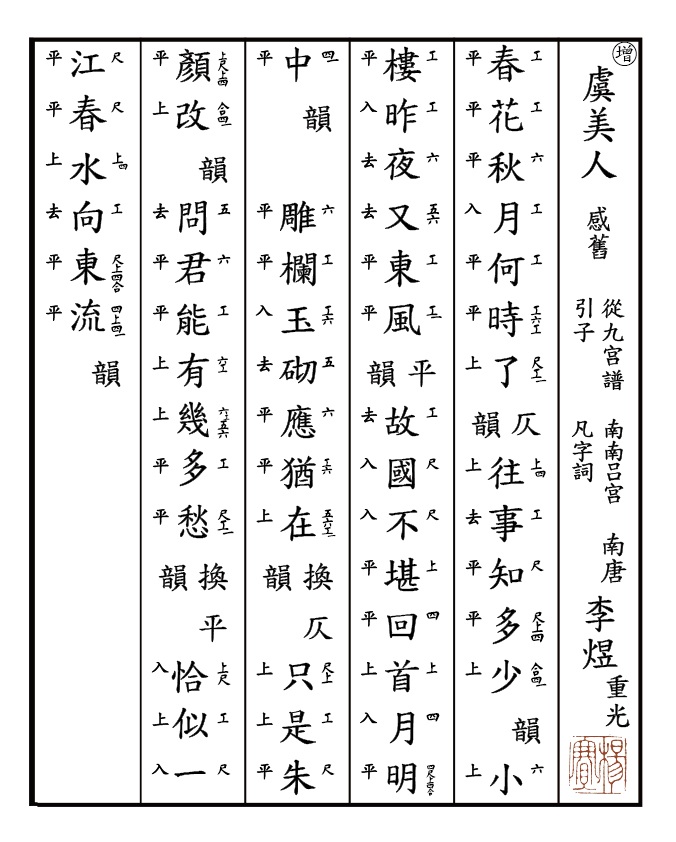 增
虞美人 感舊 從九宮譜 南南呂宮 南唐 李煜 重光
引子 凡字詞
工 工 六 工 工 工六工 上四 工 尺 尺上四 合四一 六
春花秋月何時了 仄韻 往事知多少 韻 小
平 平 平 入 平 平 上 上 去 平 平 上 上
工 工 六 五六 工 工 尺 尺 上 四 上 四 四尺上四合
樓昨夜又東風 平韻 故國不堪回首月明
平 入 去 去 平 平 去 入 入 平 平 上 入 平
四一 六 工 工六 五 六 工六 五六工 尺上 工 尺
中 韻 雕欄玉砌應猶在 換韻仄 只是朱
平 平 平 入 去 平 平 上 上 上 平
上尺上四 合四一 五 六 工 六工 六五六 工 上尺 工 尺
顏改 韻 問君能有幾多愁 換韻平 恰似一
平 上 去 平 平 上 上 平 平 入 上 入
尺 尺 上四 工 尺上四合 四上四一
江春水向東流 韻
平 平 上 去 平 平